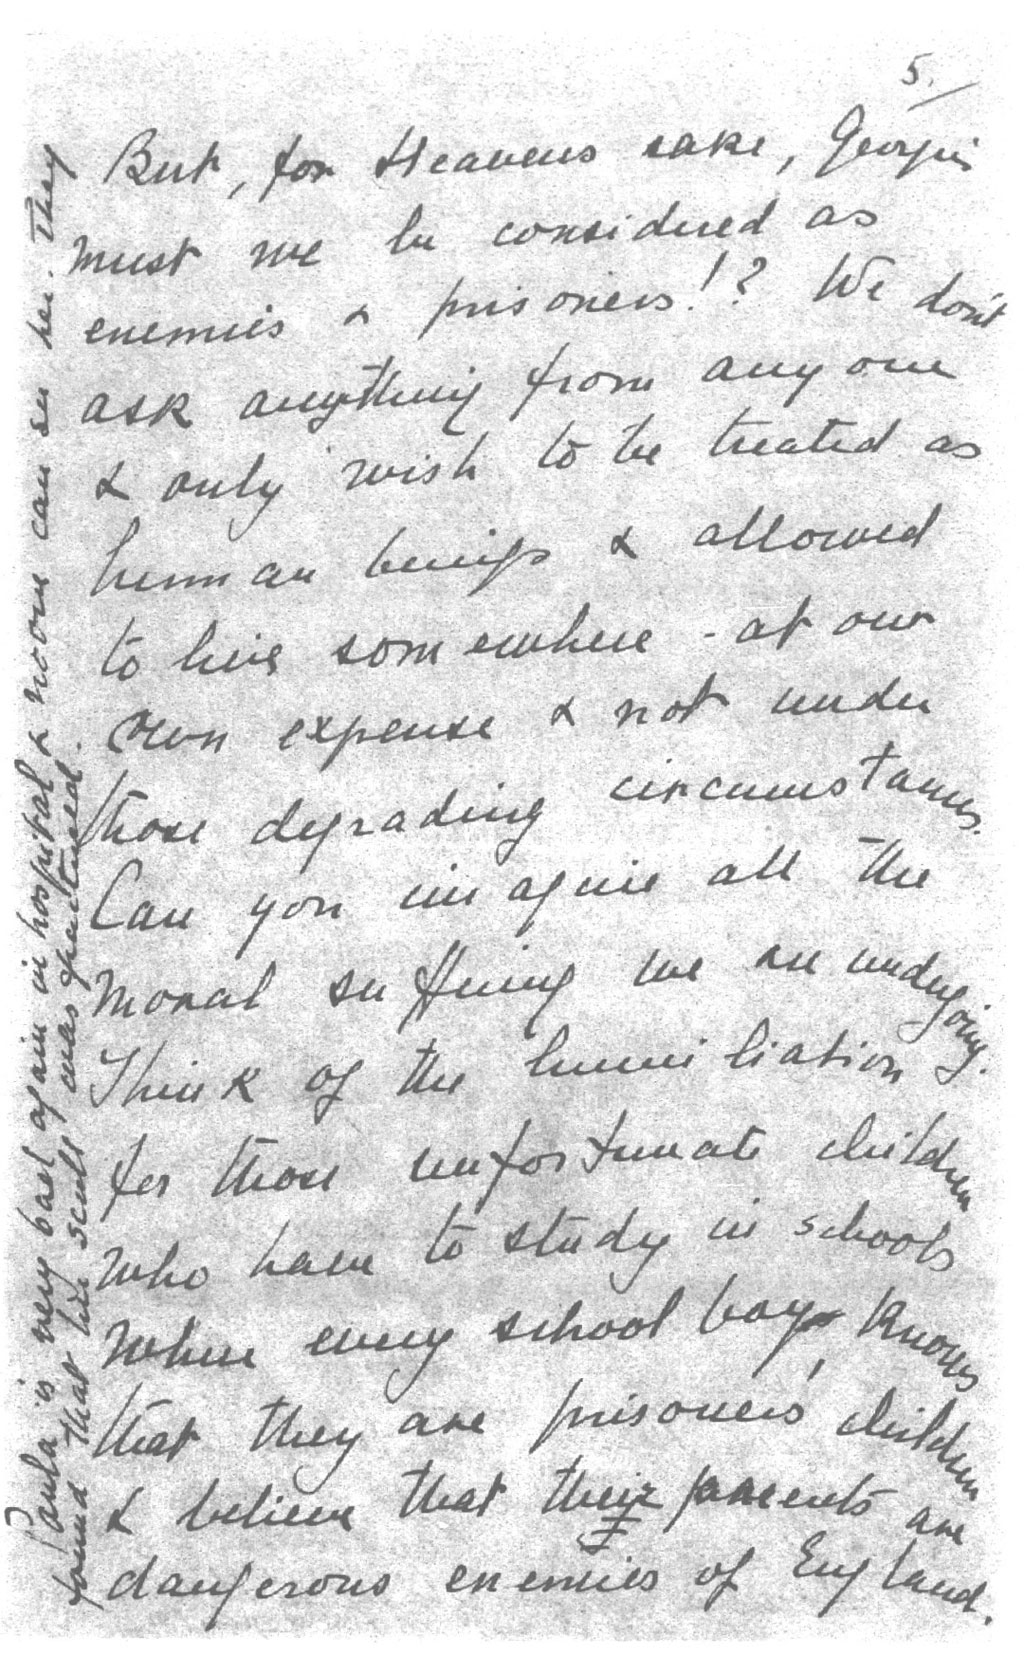 5.
But, for Heavens sake, Georgie
must we be considered as
enemies & prisoners!? We don't
ask anything from anyone
& only wish to be treated as
human beings & allowed
to live somewhere - at our
own expense & not under
those degrading circumstances.
Can you imagine all the
moral suffering we are undergoing.
Think of the humiliation
for those unfortunate children
who have to study in schools
where every school boy knows
that they are prisoners' children
& believe that their parents are
dangerous enemies of England.
Paula is very bad again in hospital & noone can see her. They
found that her scull was fractured.